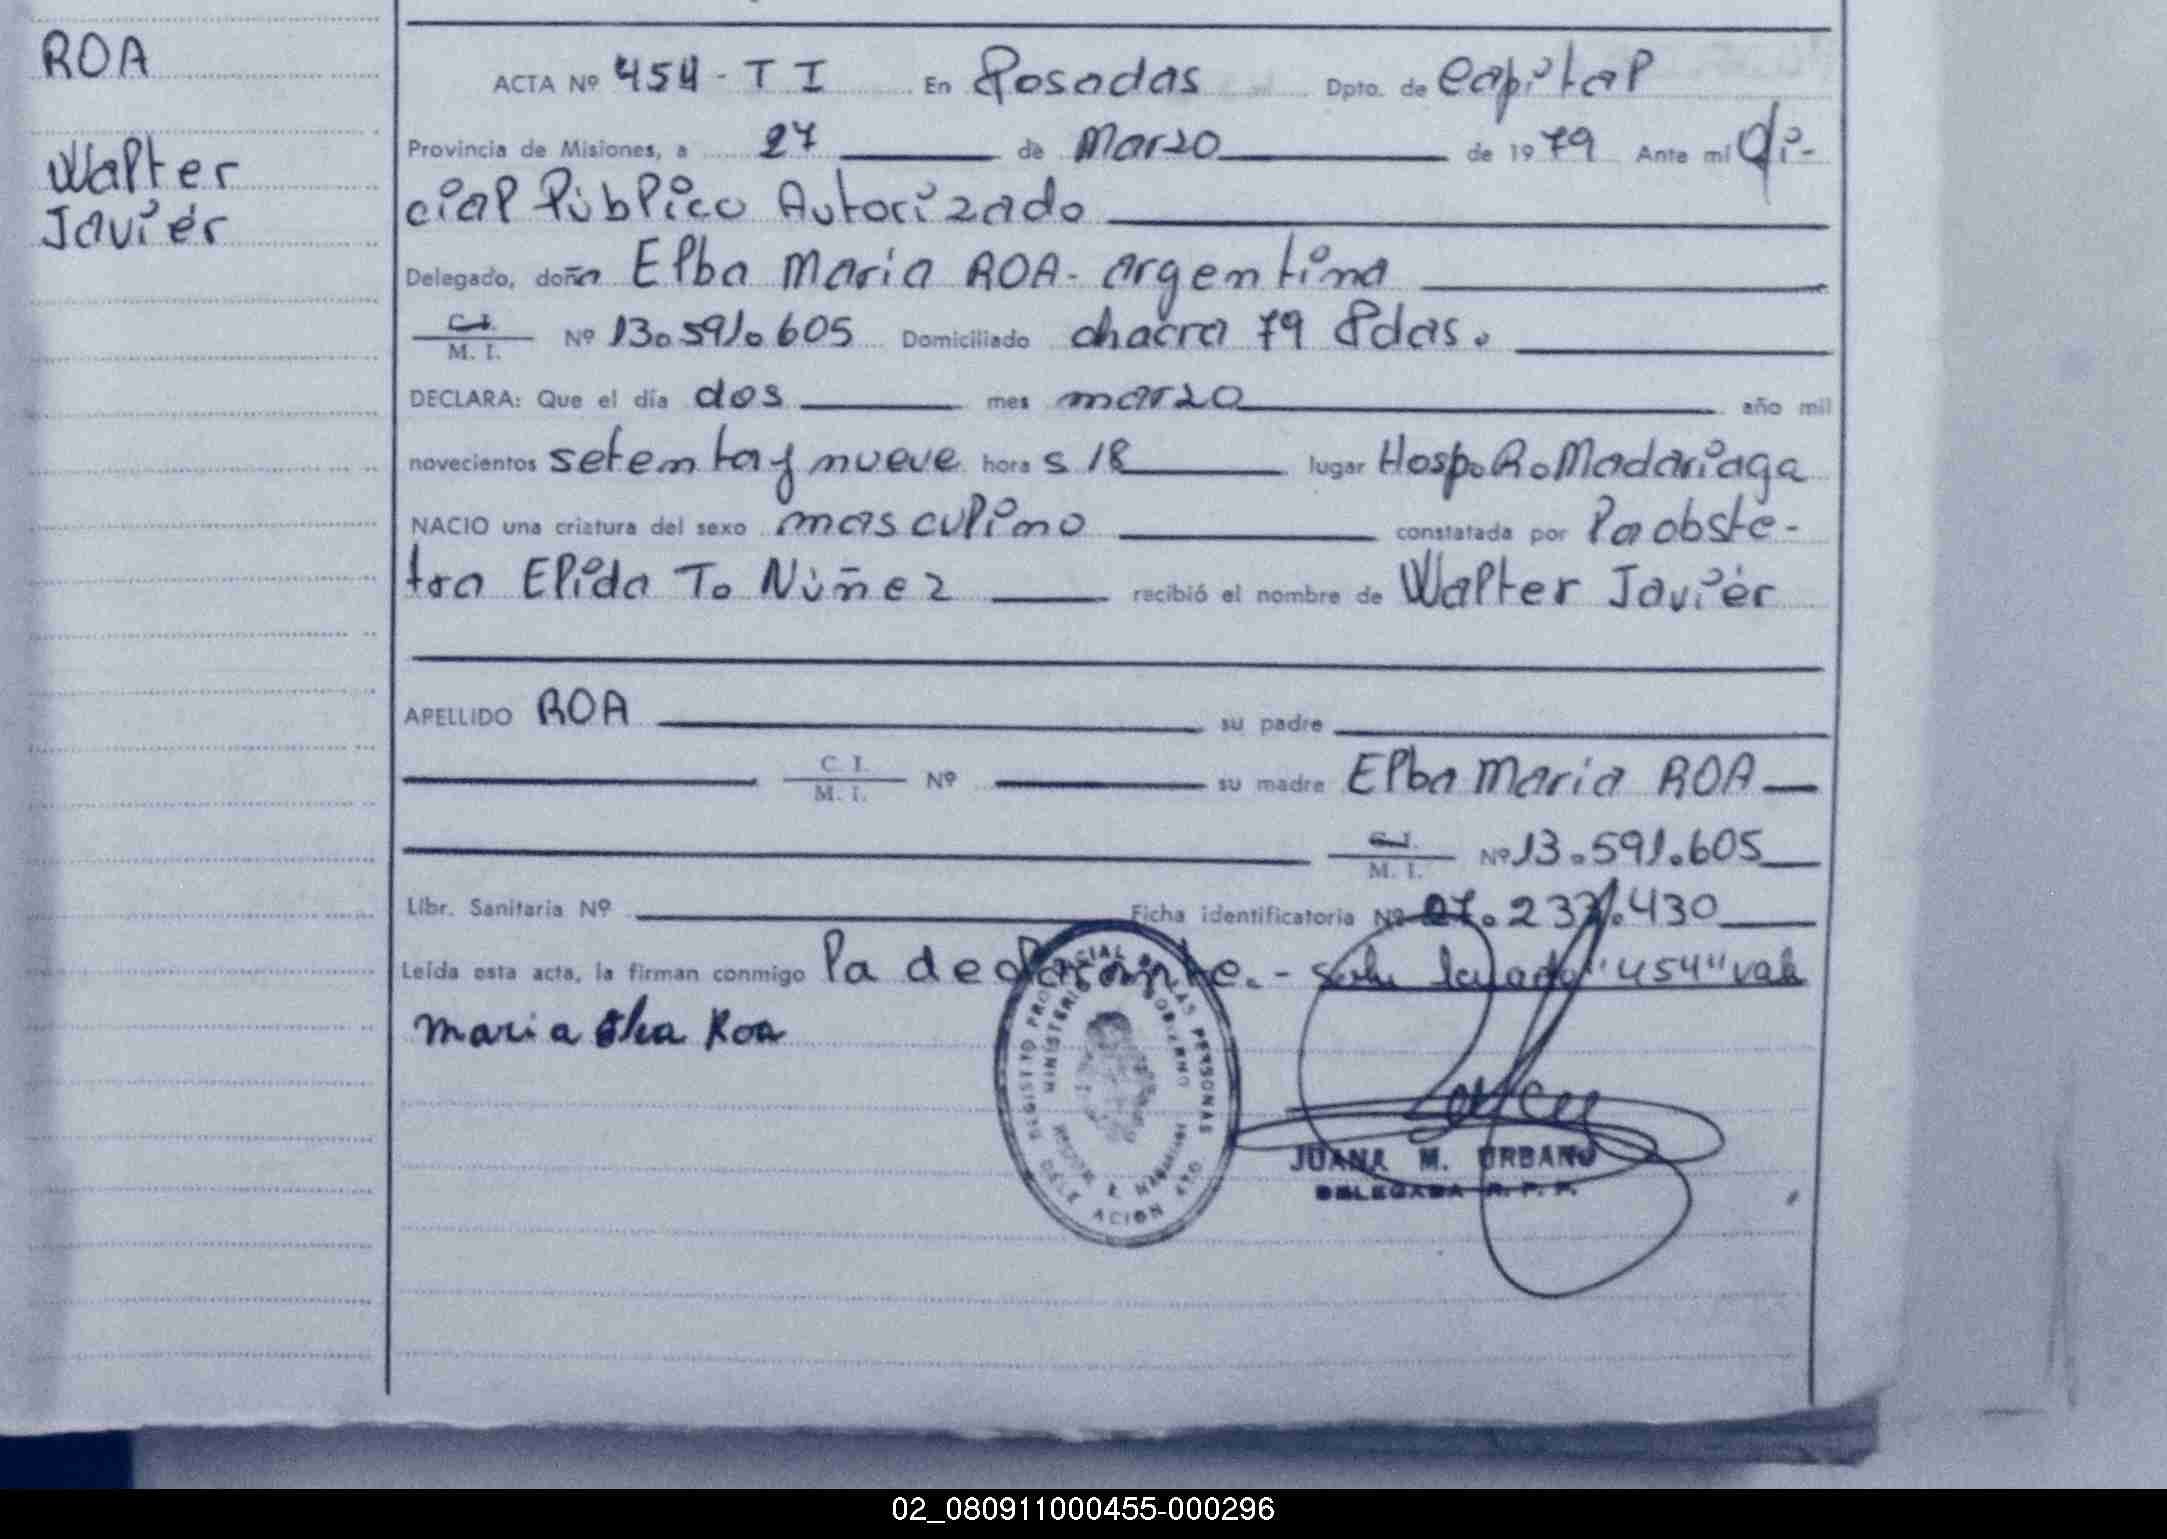 ROA
Walter
Javiér
ACTA Nº 454 - T I En Posadas Dpto. de Capital
Provincia de Misiones, a 27 de Marzo de 1979 Ante mi Ofi-
cial Público Autorizado
Delegado, doña Elba Maria ROA - argentina
C. I. / M. I. Nº 13.591.605 Domiciliado chacra 79 Pdas.
DECLARA: Que el día dos mes marzo año mil
novecientos setenta y nueve hora s 18 lugar Hosp. R. Madariaga
NACIO una criatura del sexo masculino constatada por la obste-
tra Elida T. Núñez recibió el nombre de Walter Javiér
APELLIDO ROA su padre
C. I. / M. I. Nº su madre Elba Maria ROA
C. I. / M. I. Nº 13.591.605
Libr. Sanitaria Nº Ficha identificatoria Nº 27.237.430
Leída esta acta, la firman conmigo la declarante. - sobre lavado "454" vale
Maria Roa
REGISTRO PROVINCIAL DE LAS PERSONAS
MINISTERIO GOBIERNO
DELEGACION
JUANA M. URBANO
DELEGADA R. P. P.
02_080911000455-000296